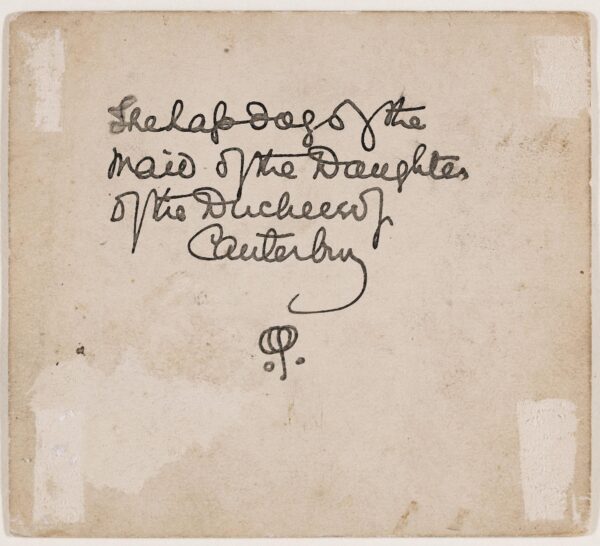 The Lap dog of the
Maid of the Daughter
of the Duchess of
Canterbury